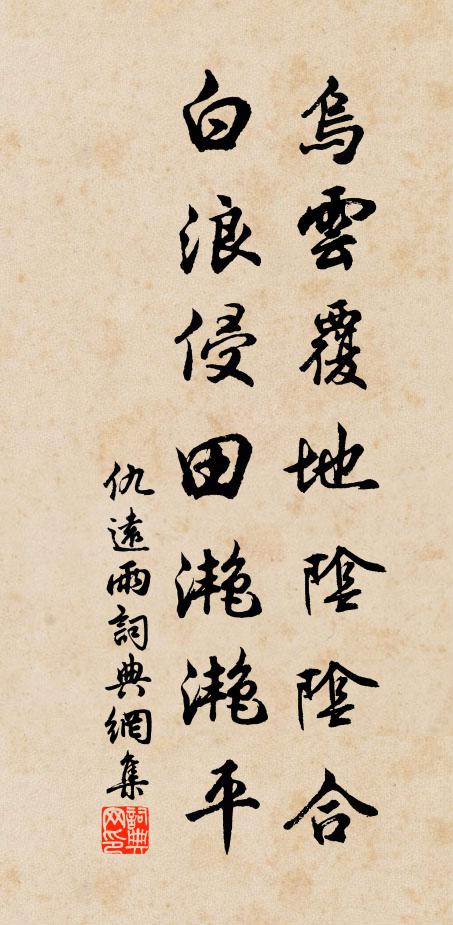 烏雲覆地陰陰合
白浪侵田灔灔平
仇遠雨詞典網集
詞典網印